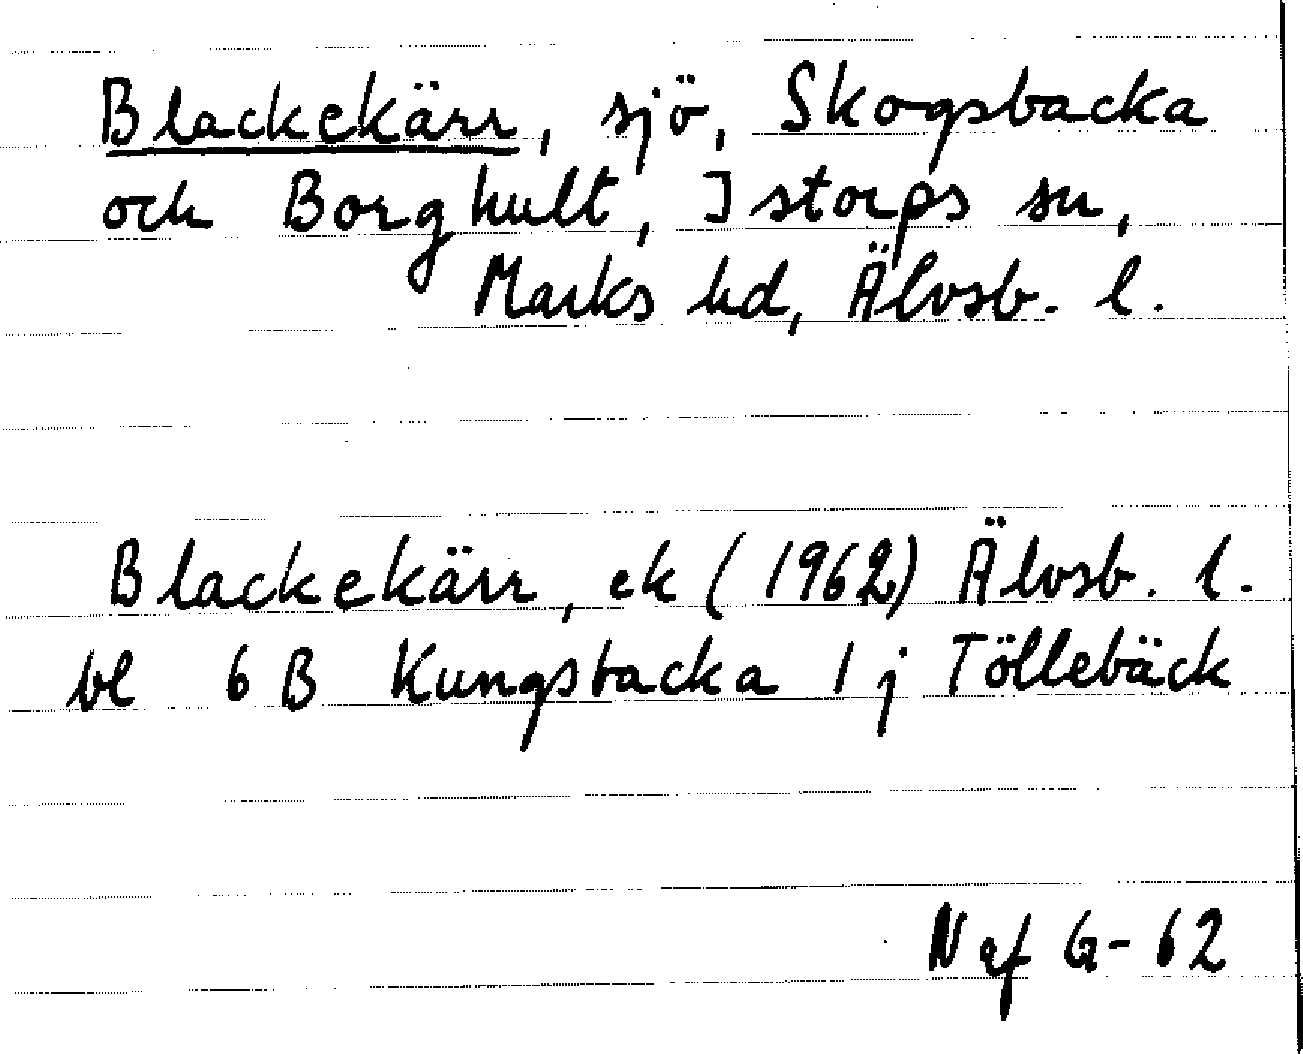 Blackekärr, sjö, Skogsbacka
och Borghult, Istorps sn,
Marks hd, Älvsb. l.
Blackekärr, ek (1962) Älvsb. l.
bl 6 B Kungsbacka 1 j Töllebäck
N af G-62